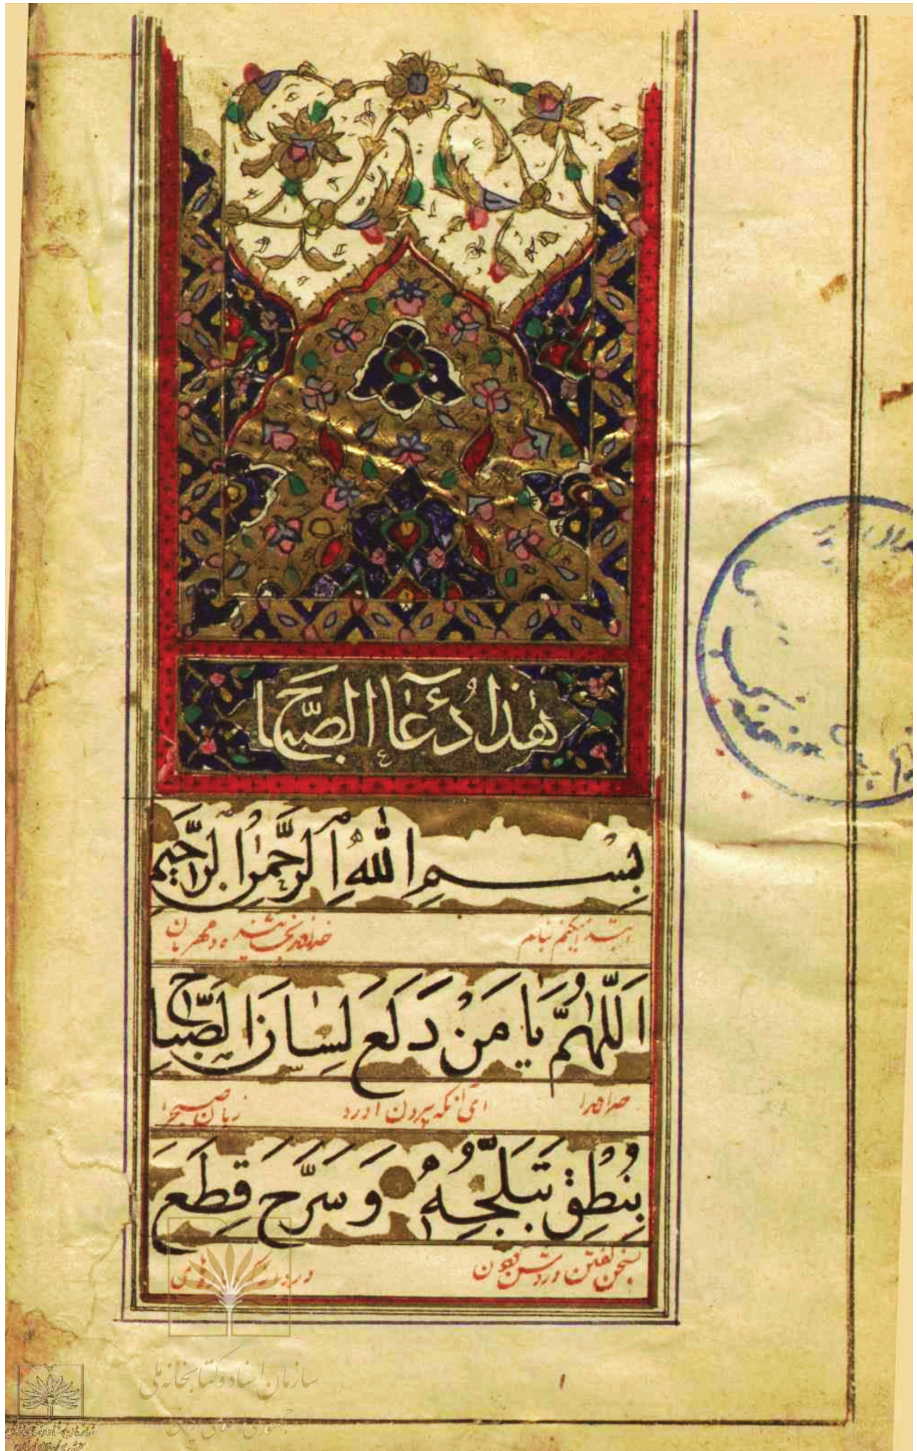 هٰذا دُعَآءُ الصَّبَاح
بِسْمِ اللّٰهِ الرَّحْمٰنِ الرَّحِيمِ
ابتدا میکنم بنام خداوند بخشنده و مهربان
اَللّٰهُمَّ يَا مَنْ دَلَعَ لِسَانَ الصَّبَاحِ
خداوندا ای آنکه بیرون آورد زبان صبح را
بِنُطْقِ تَبَلُّجِهِ وَسَرَّحَ قِطَعَ
بسخن گفتن
سازمان اسناد و کتابخانه ملی
۱